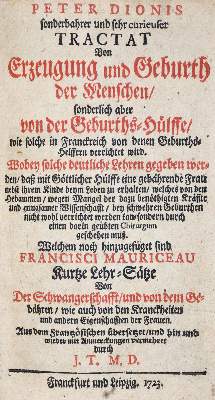 PETER DIONIS
sonderbahrer und sehr curieuser
TRACTAT
Von
Erzeugung und Geburth
der Menschen/
sonderlich aber
von der Geburths-Hülffe/
wie solche in Franckreich von denen Geburths-
Helffern verrichtet wird.
Wobey solche deutliche Lehren gegeben wer-
den/ daß mit Göttlicher Hülffe eine gebährende Frau
nebst ihrem Kinde beym Leben zu erhalten/ welches von den
Hebammen/ wegen Mangel der dazu benöthigten Kräffte
und Wissenschafft/ bey schwehren Geburthen
nicht wohl verrichtet werden kan/sondern durch
einen darin geübten Chirurgum
geschehen muß.
Welchem noch hinzugefüget sind
FRANCISCI MAURICEAU
Kurtze Lehr-Sätze
Von
Der Schwangerschafft/ und von dem Ge-
bähren/ wie auch von den Kranckheiten
und andern Eigenschafften der Frauen.
Aus dem Frantzösischen übersetzet/ und hin und
wieder mit Anmerckungen vermehret
durch
J. T. M. D.
Franckfurt und Leipzig, 1723.